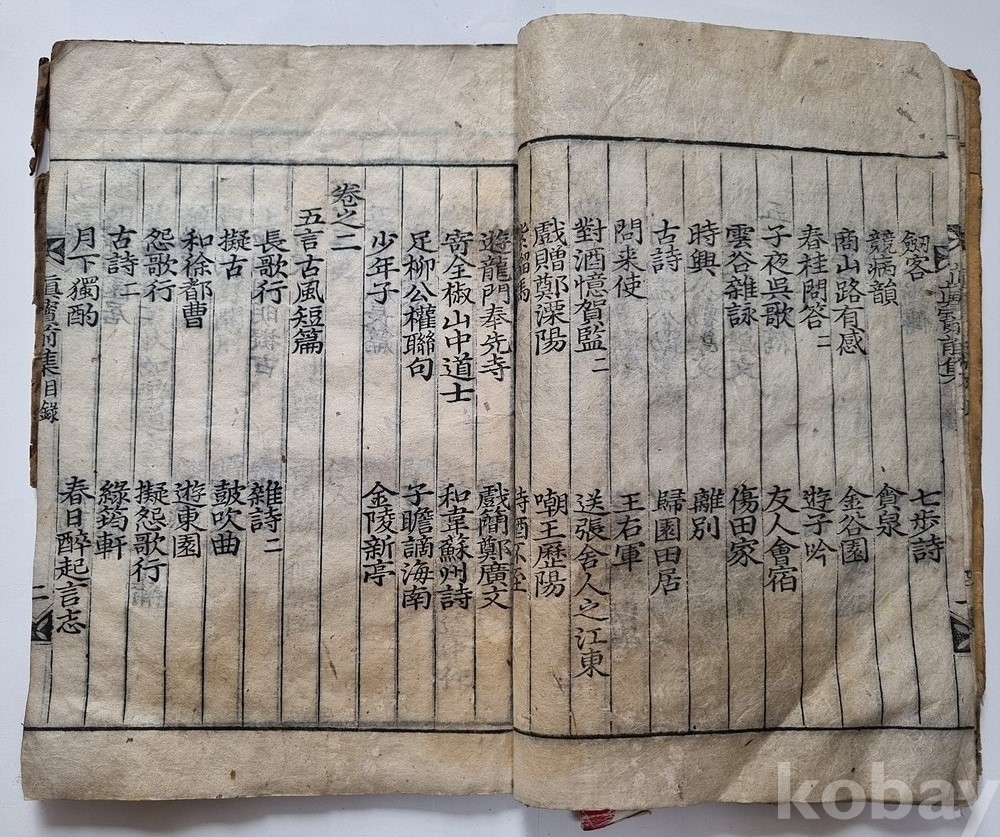 劒客 七步詩
競病韻 貪泉
商山路有感 金谷園
春桂問答二 遊子吟
子夜吳歌 友人會宿
雲谷雜詠 傷田家
時興 離別
古詩 歸園田居
問來使 王右軍
對酒憶賀監二 送張舍人之江東
戱贈鄭溧陽 嘲王歷陽
遊龍門奉先寺 戱簡鄭廣文
寄全椒山中道士 和韋蘇州詩
足柳公權聯句 子瞻謫海南
少年子 金陵新亭
卷之二
五言古風短篇
長歌行 雜詩二
擬古 鼓吹曲
和徐都曹 遊東園
怨歌行 擬怨歌行
古詩二 綠筠軒
月下獨酌 春日醉起言志
眞寶前集目錄 二
kobay